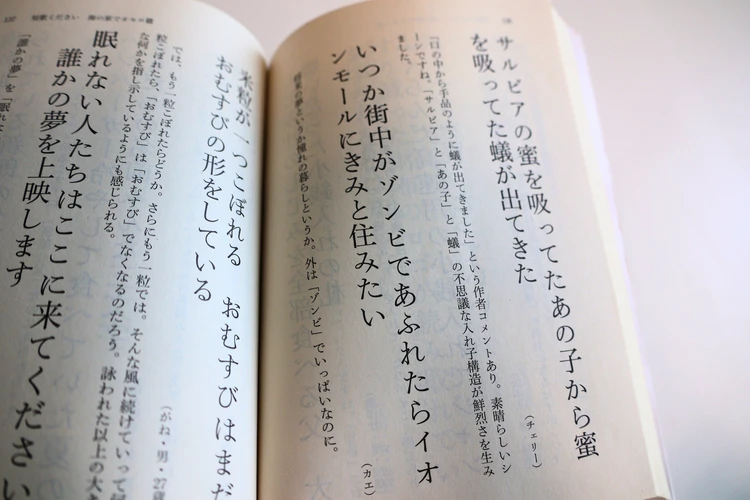 サルビアの蜜を吸ってたあの子から蜜
を吸ってた蟻が出てきた
(チェリー)
「口の中から手品のように蟻が出てきました」という作者コメントあり。素晴らしいシ
ーンですね。「サルビア」と「あの子」と「蟻」の不思議な入れ子構造が鮮烈さを生み
ました。
いつか街中がゾンビであふれたらイオ
ンモールにきみと住みたい
(カエ)
将来の夢というか憧れの暮らしというか。外は「ゾンビ」でいっぱいなのに。
137 短歌ください 海の家でオセロ篇
米粒が一つこぼれる おむすびはまだ
おむすびの形をしている
(がね・男・27歳
では、もう一粒こぼれたらどうか。さらにもう一粒では。そんな風に続けていって
粒こぼれたら、「おむすび」は「おむすび」でなくなるのだろう。詠われた以上の大き
な何かを指し示しているようにも感じられる。
眠れない人たちはここに来てください
誰かの夢を上映します
「誰かの夢」を「眠れな